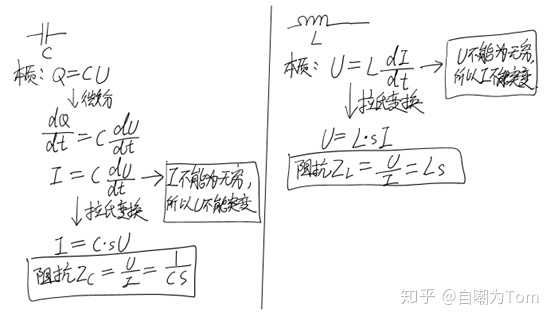 C
本质: Q=CU
↓微分
dQ/dt = C dU/dt
I = C dU/dt → I不能为无穷,
所以U不能突变
↓拉氏变换
I = C·sU
阻抗Zc = U/I = 1/CS
L
本质: U = L dI/dt → U不能为无穷,
所以I不能突变
↓拉氏变换
U = L·sI
阻抗ZL = U/I = LS
知乎 @自嘲为Tom